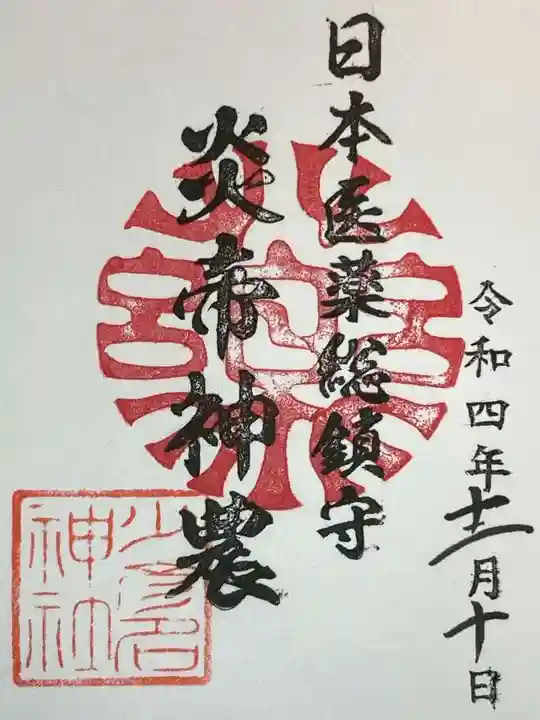 日本医薬総鎮守
炎帝神農
令和四年十二月十日
少彦名
神社